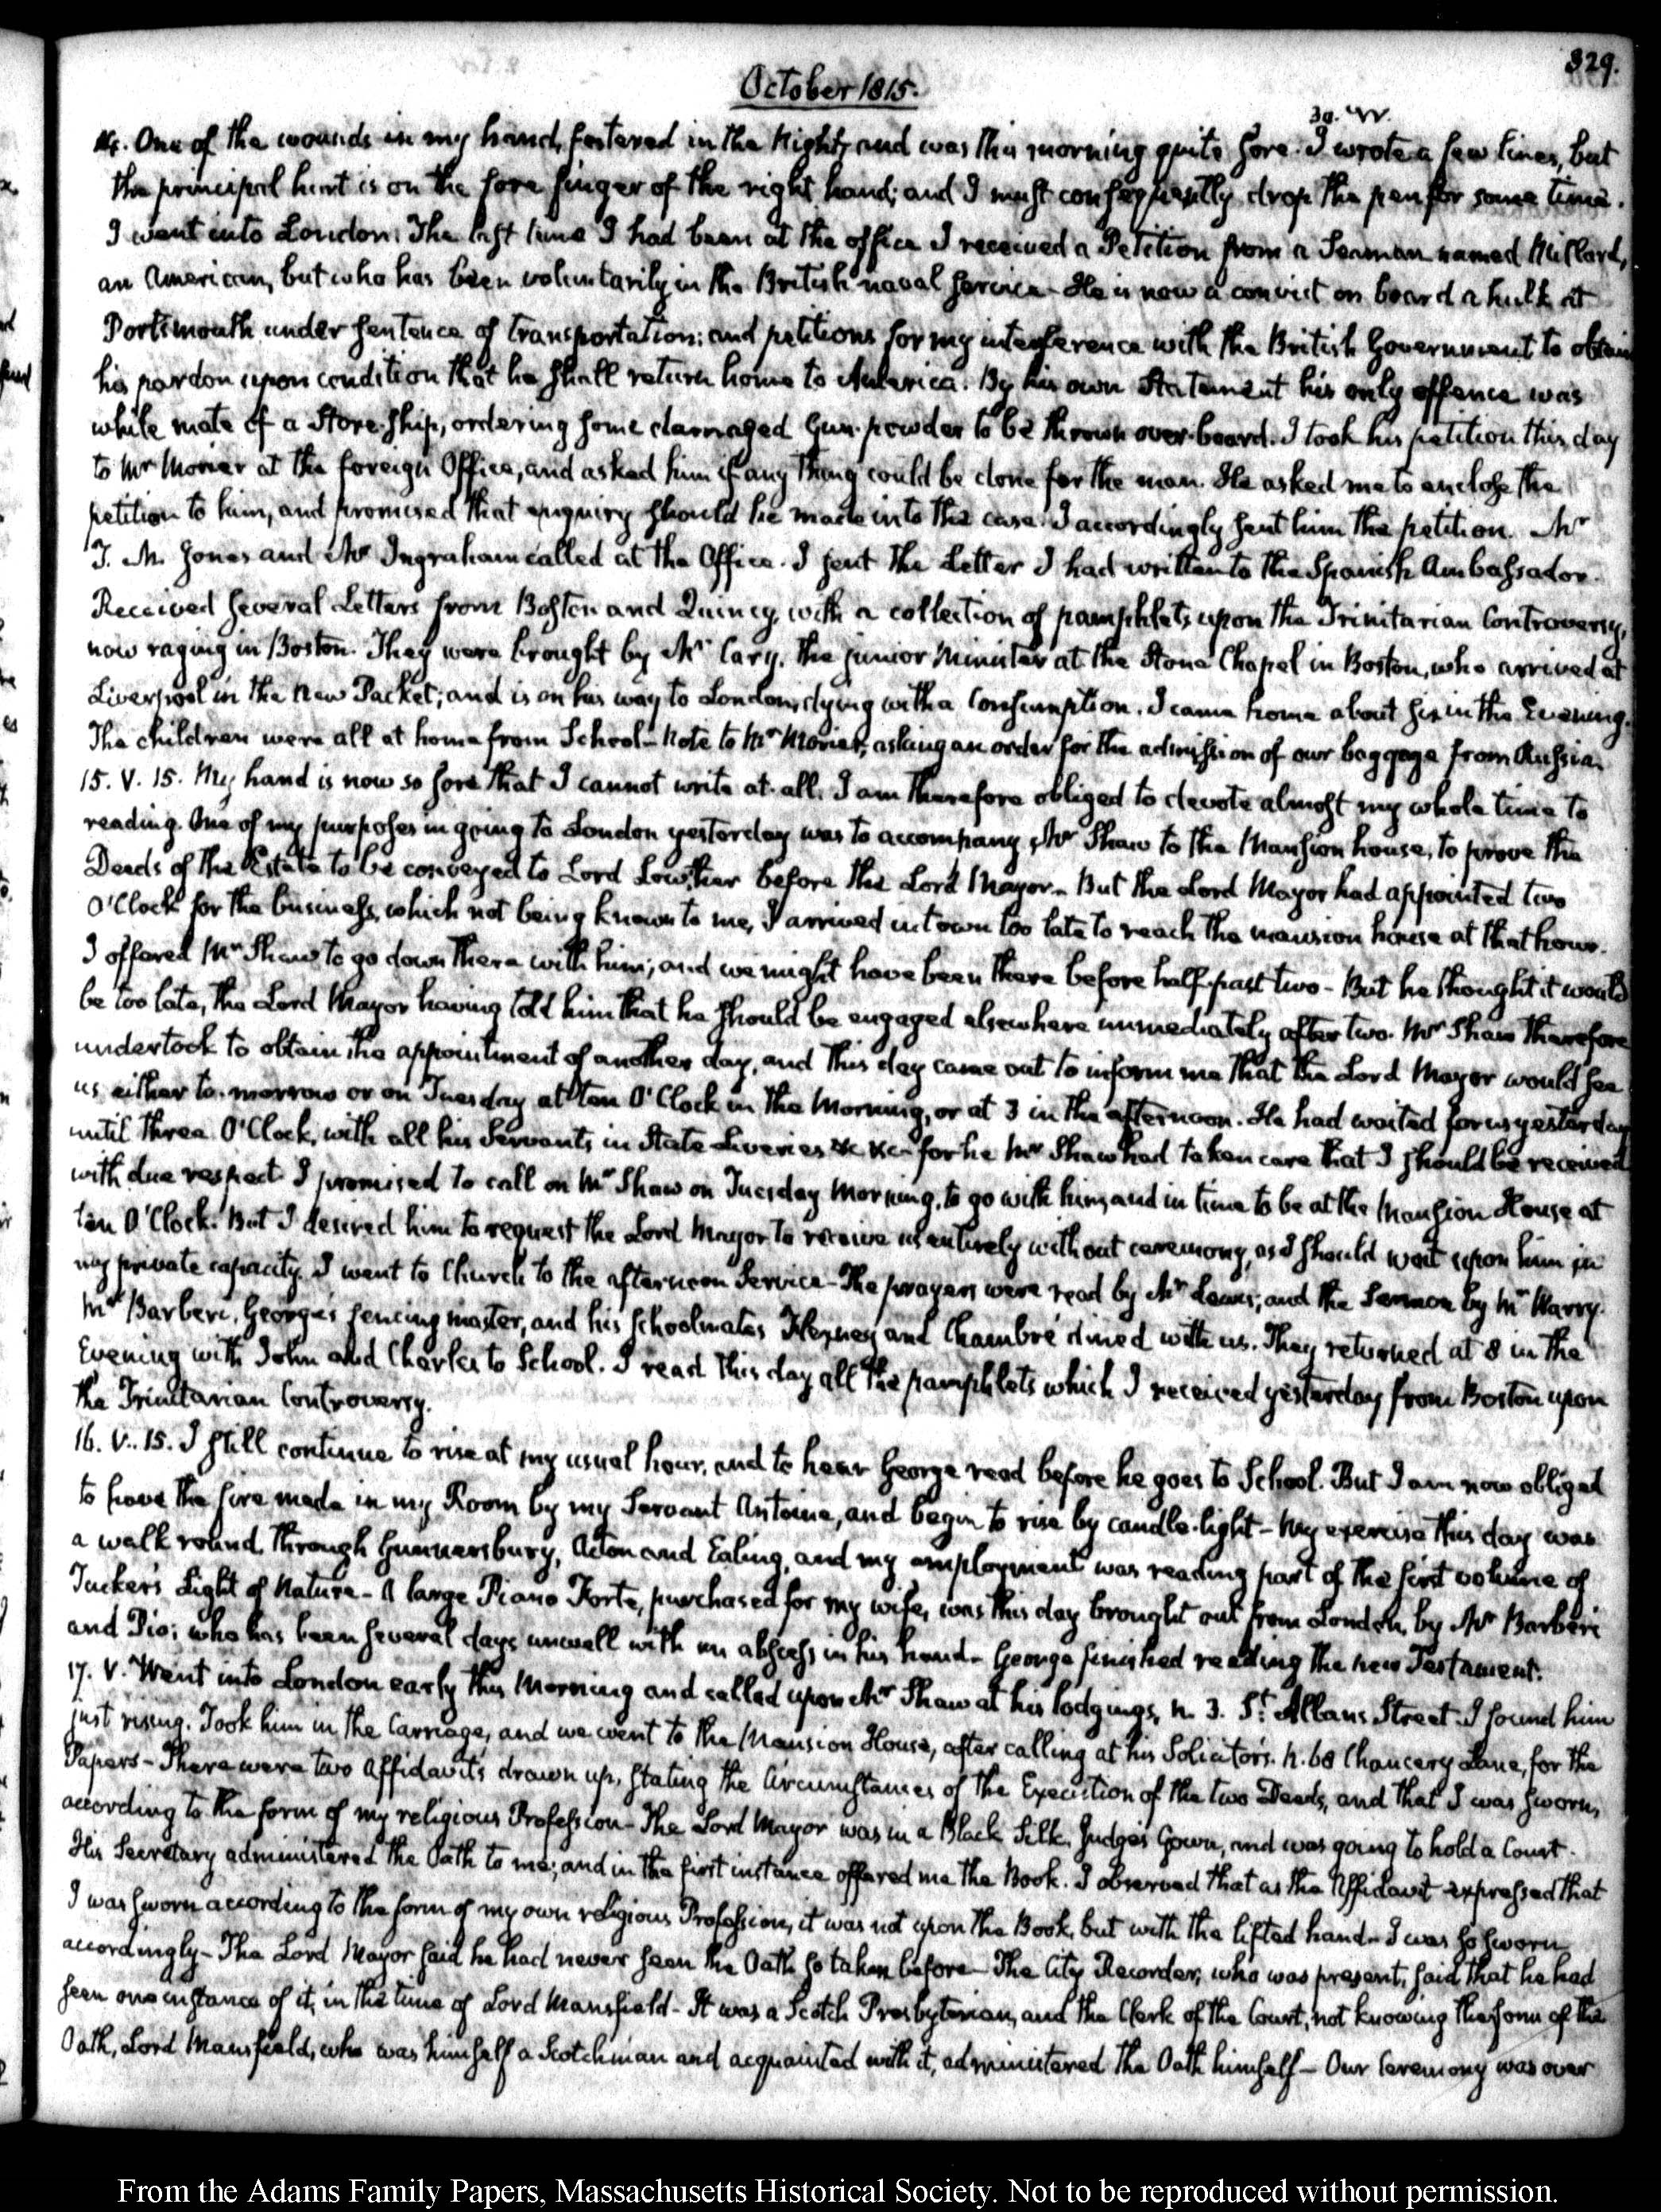 329.
October 1815.
14. One of the wounds in my hand, festered in the Night, and was this morning quite sore. I wrote a few lines, but
the principal hurt is on the fore finger of the right hand; and I must consequently drop the pen for some time.
I went into London. The last time I had been at the office I received a Petition from a Seaman named Millard,
an American, but who has been voluntarily in the British naval service - He is now a convict on board a hulk at
Portsmouth under sentence of transportation; and petitions for my interference with the British Government to obtain
his pardon upon condition that he shall return home to America. By his own Statement his only offence was
while mate of a Store-ship, ordering some damaged Gun-powder to be thrown over-board. I took his petition this day
to Mr Morier at the foreign Office, and asked him if any thing could be done for the man. He asked me to enclose the
petition to him, and promised that enquiry should be made into the case. I accordingly sent him the petition. Mr
T. M. Jones and Mr Ingraham called at the Office. I sent the Letter I had written to the Spanish Ambassador.
Received several Letters from Boston and Quincy, with a collection of pamphlets upon the Trinitarian Controversy,
now raging in Boston. They were brought by Mr Cary, the junior Minister at the Stone Chapel in Boston, who arrived at
Liverpool in the New Packet; and is on his way to London, dying with a Consumption. I came home about six in the Evening.
The children were all at home from School - Note to Mr Morier, asking an order for the admission of our baggage from Russia.
15. V. 15. My hand is now so sore that I cannot write at all. I am therefore obliged to devote almost my whole time to
reading. One of my purposes in going to London yesterday was to accompany Mr Shaw to the Mansion house, to prove the
Deeds of the Estate to be conveyed to Lord Lowther before the Lord Mayor - But the Lord Mayor had appointed two
O'Clock for the business, which not being known to me, I arrived in town too late to reach the mansion house at that hour.
I offered Mr Shaw to go down there with him; and we might have been there before half-past two - But he thought it would
be too late, the Lord Mayor having told him that he should be engaged elsewhere immediately after two. Mr Shaw therefore
undertook to obtain the appointment of another day, and this day came out to inform me that the Lord Mayor would see
us either to-morrow or on Tuesday at ten O'Clock in the Morning, or at 3 in the afternoon. He had waited for us yesterday
until three O'Clock, with all his Servants in State Liveries &c &c - for he Mr Shaw had taken care that I should be received
with due respect. I promised to call on Mr Shaw on Tuesday Morning, to go with him, and in time to be at the Mansion House at
ten O'Clock. But I desired him to request the Lord Mayor to receive us entirely without ceremony, as I should wait upon him in
my private capacity. I went to Church to the afternoon Service - The prayers were read by Mr Lewis; and the Sermon by Mr Harry.
Mr Barberi, George's fencing master, and his schoolmates and Chambré dined with us. They returned at 8 in the
Evening with John and Charles to School. I read this day all the pamphlets which I received yesterday from Boston upon
the Trinitarian Controversy.
16. V.. 15. I still continue to rise at my usual hour, and to hear George read before he goes to School. But I am now obliged
to have the fire made in my Room by my Servant Antoine, and begin to rise by candle-light - My exercise this day was
a walk round, through Gunnersbury, Acton and Ealing, and my employment was reading part of the first volume of
Tucker's Light of Nature - A large Piano Forte, purchased for my wife, was this day brought out from London, by Mr Barberi
and Pio; who has been several days unwell with an abscess in his hand - George finished reading the new Testament.
17. V. Went into London early this Morning and called upon Mr Shaw at his lodgings, N. 3. St Albans Street. I found him
just rising. Took him in the Carriage, and we went to the Mansion House, after calling at his Solicitor's. N. 68 Chancery Lane, for the
Papers - There were two affidavits drawn up, stating the Circumstances of the Execution of the two Deeds, and that I was sworn,
according to the form of my religious Profession - The Lord Mayor was in a Black Silk, Judge's Gown, and was going to hold a Court.
His Secretary administered the Oath to me; and in the first instance offered me the Book. I observed that as the Affidavit expressed that
I was sworn according to the form of my own religious Profession, it was not upon the Book, but with the lifted hand - I was so sworn
accordingly - The Lord Mayor said he had never seen the Oath so taken before - The City Recorder, who was present, said that he had
seen one instance of it, in the time of Lord Mansfield - It was a Scotch Presbyterian, and the Clerk of the Court, not knowing the form of the
Oath, Lord Mansfield, who was himself a Scotchman and acquainted with it, administered the Oath himself - Our Ceremony was over
From the Adams Family Papers, Massachusetts Historical Society. Not to be reproduced without permission.